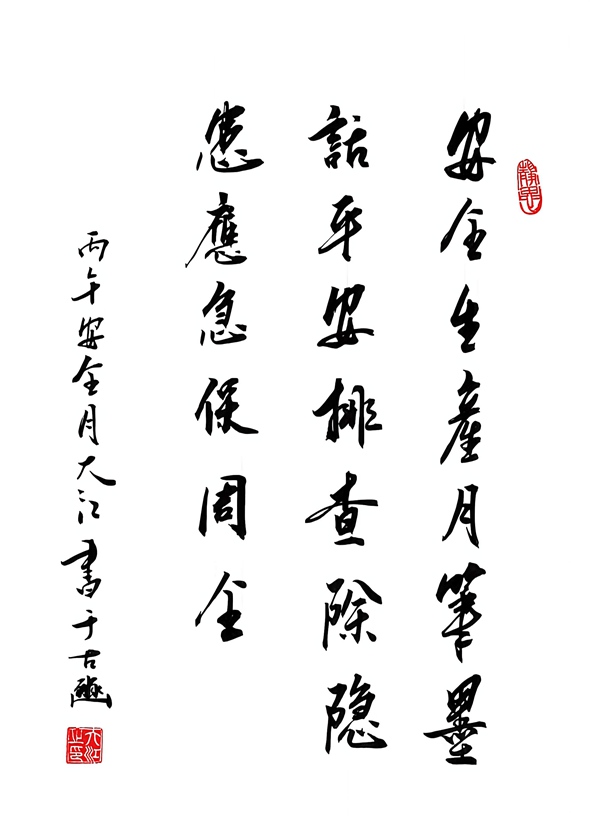 安全生產月筆墨
話平安排查除隐
患應急保周全
丙午安全月大江書于古豳
大江之印